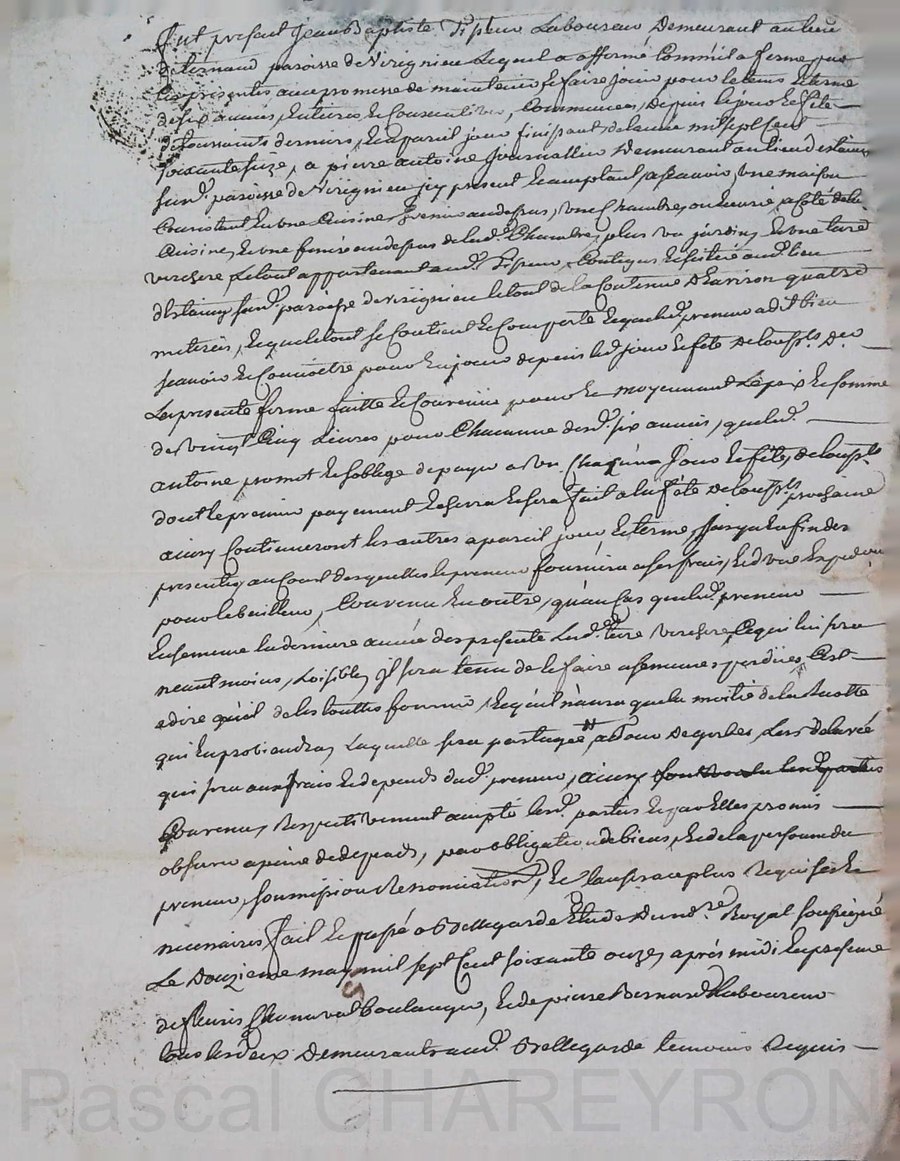 fut présent Jean Baptiste Tipeur Laboureur Demeurant au lieu
de paroisse de Virignieu Lequel a affermé Comme il afferme par
Les presentes avec promesse de maintenir et faire Jouir pour le tems et terme
de six années, Entieres et Consecutives, Commencées, depuis le jour et fete
de toussaints derniere, Et a pareil jour finissants de lannée mil sept Cent
soixante seize, a pierre antoine Journallier Demeurant au lieu destaing
paroisse de Virignieu jcy present Et acceptant, a scavoir, une maison
Consistant En une Cuisine Grenier au dessus, une Chambre, ou Ecurie a Coté de la
Cuisine, Et une feniere au dessus de lad. Chambre, plus un jardin, Et une terre
verchere Le tout appartenant aud. Tipeur, Contigus Et situé aud. lieu
destaing paroisse de virignieu le tout de la Contenue D'environ quatre
metérées, Et que le tout se Contient Et Comporte Et que led. preneur a dit bien
scavoir Et Connoitre pour En jouir depuis led. jour Et fete de toussts. der
La presente ferme faitte Et Convenüe pour Et moyennant Le prix Et Somme
de Vingt Cinq Livres pour Chacunne desd. six années, que led.
antoine promet Et soblige de payer a un Chacun Jour Et fete de toussts
dont le premier payement Echerra Et sera fait a la fete de toussts. prochaine
ainsy Continueront les autres a pareil jour Et terme, Jusqu'a la fin des
presentes, au Cours desquelles le preneur fournira a ses frais, Led.
pour le bailleur, Convenu En outre, qu'au Cas que led. preneur
Ensemence la derniere année des presentes Lad. terre verchere, Ce qui lui sera
neantmoins, Loisible, jl sera tenu de le faire a semences perdües, C'est
a dire qu'il de les touttes fournir, Et qu'il n'aura que la moitié de la Recolte
qui En proviendra, Laquelle sera partagée De gerbes, Lors de
qui sera aux frais Et depends dud. preneur, ainsy
Convenu, Respectivement accepté lesd. parties Et par Elles promis
observer a peine de depends, par obligation de biens, Et de la personne du
preneur, soumission Renonciation, Et Clauses au plus Requises Et
necessaires, fait Et passé a Bellegarde Etude Du nre. Royal soussigné
Le Douzieme may mil sept Cent soixante onze, après midi En presence
de fleuris Boulanger, Et de pierre Bernard Laboureur
tous les deux Demeurants aud. Bellegarde temoins Requis
Pascal CHAREYRON